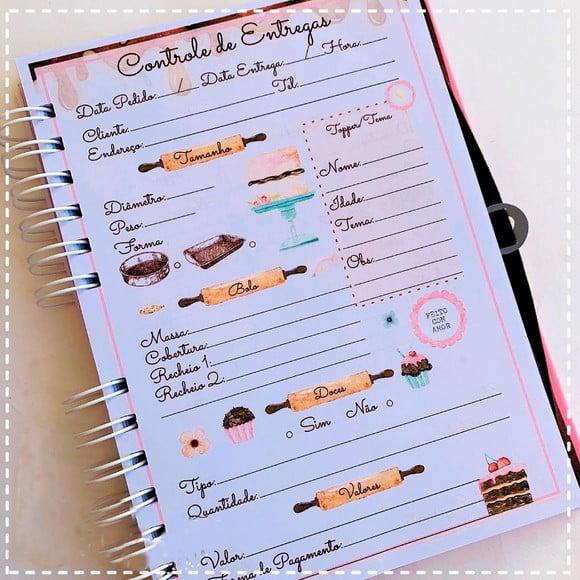 Controle de Entregas
Data Pedido: / Data Entrega: / Hora:
Cliente: Tel:
Endereço:
Tamanho
Diâmetro:
Peso:
Forma
Topper/Tema
Nome:
Idade:
Tema:
Obs:
Bolo
Massa:
Cobertura:
Recheio 1:
Recheio 2:
FEITO
COM
AMOR
Doces
Sim Não
Tipo:
Quantidade:
Valores
Valor:
Forma de Pagamento: